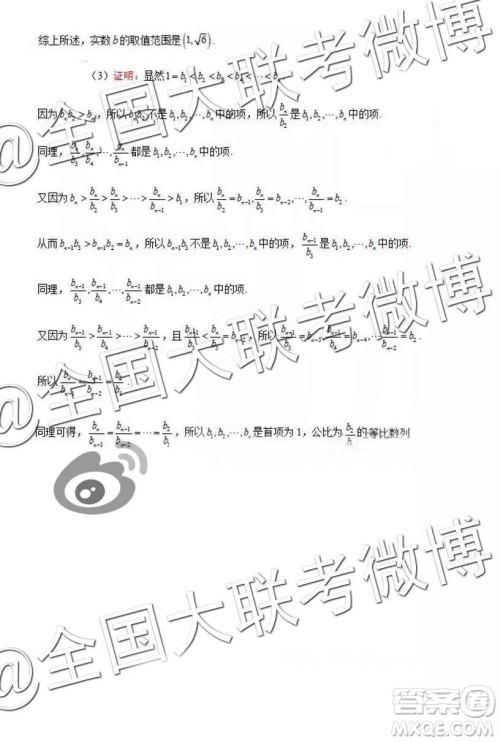 综上所述，实数 b 的取值范围是 (1,√6).
(3) 证明：显然 1=b₁<b₂<b₃<b₄<⋯<bₙ.
因为 bₙb₂>bₙ，所以 bₙb₂ 不是 b₁,b₂,⋯,bₙ 中的项，所以 bₙ/b₂ 是 b₁,b₂,⋯,bₙ 中的项.
同理，bₙ/b₃,bₙ/b₄,⋯,bₙ/bₙ₋₁ 都是 b₁,b₂,⋯,bₙ 中的项.
又因为 bₙ>bₙ/b₂>bₙ/b₃>⋯>bₙ/bₙ₋₁>b₁，所以 bₙ/b₂=bₙ₋₁,bₙ/b₃=bₙ₋₂,⋯,bₙ/bₙ₋₁=b₂.
从而 bₙ₋₁b₃>bₙ₋₁b₂=bₙ，所以 bₙ₋₁b₃ 不是 b₁,b₂,⋯,bₙ 中的项，bₙ₋₁/b₃ 是 b₁,b₂,⋯,bₙ 中的项.
同理，bₙ₋₁/b₃,bₙ₋₁/b₄,⋯,bₙ₋₁/bₙ₋₂ 都是 b₁,b₂,⋯,bₙ 中的项.
又因为 bₙ₋₁/b₃>bₙ₋₁/b₄>⋯>bₙ₋₁/bₙ₋₂，且
所以
同理可得，bₙ/bₙ₋₁=bₙ₋₁/bₙ₋₂=⋯=b₂/b₁，所以 b₁,b₂,⋯,bₙ 是首项为 1，公比为 b₂/b₁ 的等比数列
@全国大联考微博
@全国大联考微博
答案圈
MXQE.COM